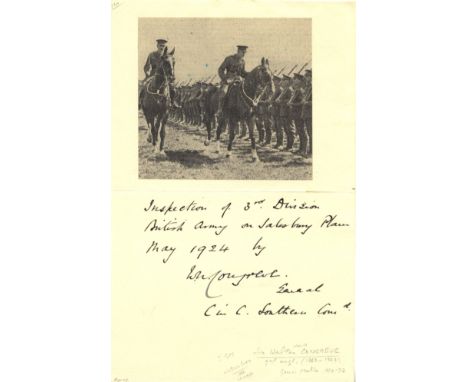 Inspection of 3rd Division
British Army on Salesbury Plain
May 1924 by
W N Congreve.
General
C in C. Southern Comd.
Sir Walter CONGREVE